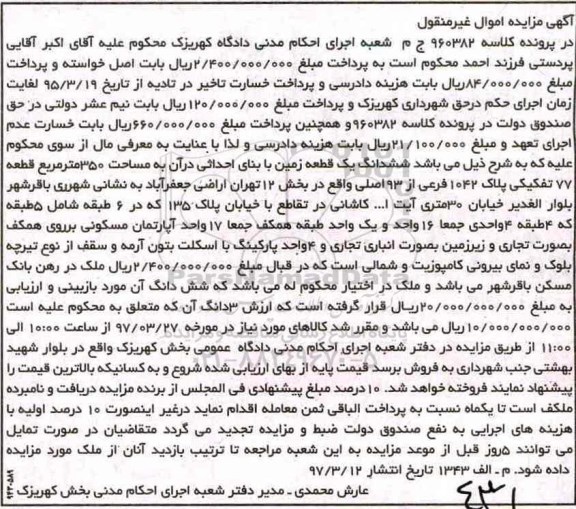 آگهی مزایده اموال غیرمنقول
در پرونده کلاسه ۹۶۰۳۸۲ ج م شعبه اجرای احکام مدنی دادگاه کهریزک محکوم علیه آقای اکبر آقایی
پردستی فرزند احمد محکوم است به پرداخت مبلغ ۲/۴۰۰/۰۰۰/۰۰۰ریال بابت اصل خواسته و پرداخت
مبلغ ۸۴/۰۰۰/۰۰۰ریال بابت هزینه دادرسی و پرداخت خسارت تاخیر در تادیه از تاریخ ۹۵/۳/۱۹ لغایت
زمان اجرای حکم درحق شهرداری کهریزک و پرداخت مبلغ ۱۲۰/۰۰۰/۰۰۰ریال بابت نیم عشر دولتی در حق
صندوق دولت در پرونده کلاسه ۹۶۰۳۸۲و همچنین پرداخت مبلغ ۶۶۰/۰۰۰/۰۰۰ریال بابت خسارت عدم
اجرای تعهد و مبلغ ۲۱/۱۰۰/۰۰۰ریال بابت هزینه دادرسی و لذا با عنایت به معرفی مال از سوی محکوم
علیه که به شرح ذیل می باشد ششدانگ یک قطعه زمین با بنای احداثی درآن به مساحت ۳۵۰مترمربع قطعه
۷۷ تفکیکی پلاک ۱۰۴۲ فرعی از ۹۳اصلی واقع در بخش ۱۲تهران اراضی جعفرآباد به نشانی شهرری باقرشهر
بلوار الغدیر خیابان ۳۰متری آیت ا... کاشانی در تقاطع با خیابان پلاک ۱۳۵ که در ۶ طبقه شامل ۵طبقه
که ۴طبقه ۴واحدی جمعا ۱۶واحد و یک واحد طبقه همکف جمعا ۱۷واحد آپارتمان مسکونی برروی همکف
بصورت تجاری و زیرزمین بصورت انباری تجاری و ۴واحد پارکینگ با اسکلت بتون آرمه و سقف از نوع تیرچه
بلوک و نمای بیرونی کامپوزیت و شمالی است که در قبال مبلغ ۲/۴۰۰/۰۰۰/۰۰۰ریال ملک در رهن بانک
مسکن باقرشهر می باشد و ملک در اختیار محکوم له می باشد که شش دانگ آن مورد بازبینی و ارزیابی
به مبلغ ۲۰/۰۰۰/۰۰۰/۰۰۰ریال قرار گرفته است که ارزش ۳دانگ آن که متعلق به محکوم علیه است
۱۰/۰۰۰/۰۰۰/۰۰۰ریال می باشد و مقرر شد کالاهای مورد نیاز در مورخه ۹۷/۰۳/۲۷ از ساعت ۱۰:۰۰ الی
۱۱:۰۰ از طریق مزایده در دفتر شعبه اجرای احکام مدنی دادگاه عمومی بخش کهریزک واقع در بلوار شهید
بهشتی جنب شهرداری به فروش برسد قیمت پایه از بهای ارزیابی شده شروع و به کسانیکه بالاترین قیمت را
پیشنهاد نمایند فروخته خواهد شد. ۱۰درصد مبلغ پیشنهادی فی المجلس از برنده مزایده دریافت و نامبرده
ملکف است تا یکماه نسبت به پرداخت الباقی ثمن معامله اقدام نماید درغیر اینصورت ۱۰ درصد اولیه با
هزینه های اجرایی به نفع صندوق دولت ضبط و مزایده تجدید می گردد متقاضیان در صورت تمایل
می توانند ۵روز قبل از موعد مزایده به این شعبه مراجعه تا ترتیب بازدید آنان از ملک مورد مزایده
داده شود. م ـ الف ۱۳۴۳ تاریخ انتشار ۹۷/۳/۱۲
عارش محمدی ـ مدیر دفتر شعبه اجرای احکام مدنی بخش کهریزک